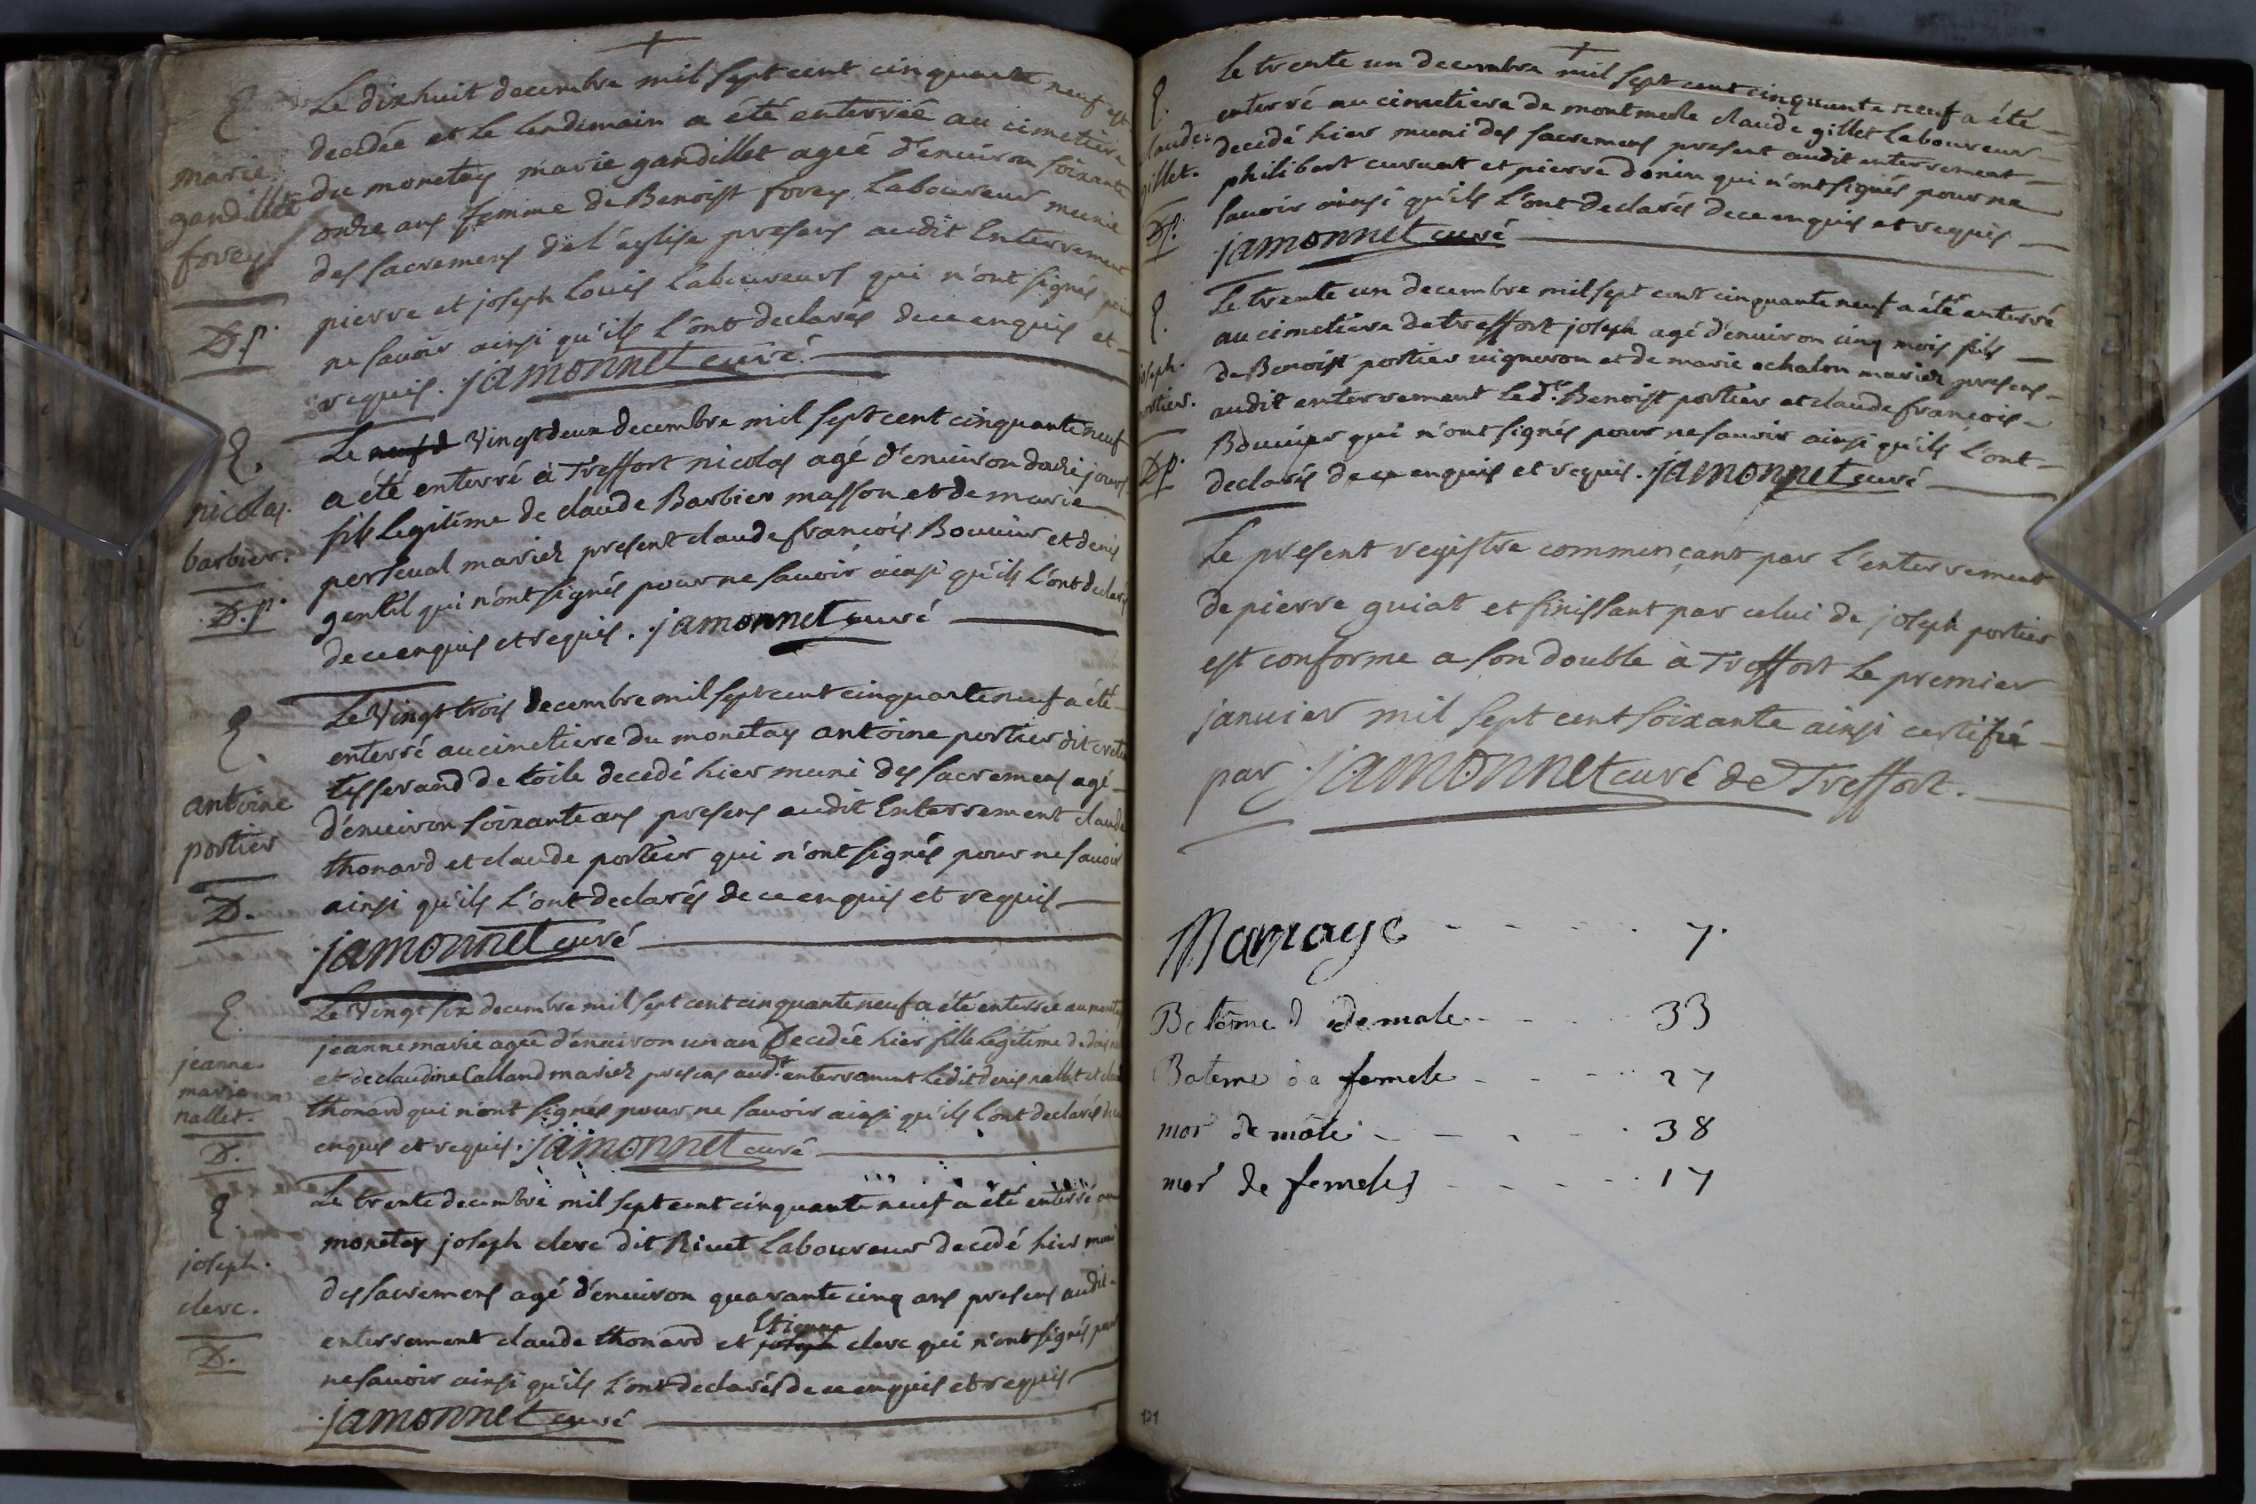 Le dixhuit decembre mil sept cent cinquante neuf est
decedée et le lendemain a été enterrée au cimetiere
du monetay marie gandillet agée d'environ soixante
onze ans femme de Benoist forey Laboureur munie
des sacremens de l'église presens audit Enterrement
pierre et joseph Louis Laboureurs qui n'ont signés pour
ne savoir ainsi qu'ils l'ont declarés de ce enquis et
requis. jamonnet curé
E.
marie
gandillet
forey
D.p.
Le neuf d Vingt deux decembre mil sept cent cinquante neuf
a été enterré à Treffort nicolas agé d'environ douze jours
fils Legitime de claude Barbier masson et de marie
perseval mariez present claude françois Bouvier et denis
gentil qui n'ont signés pour ne savoir ainsi qu'ils l'ont declarés
de ce enquis et requis. jamonnet curé
E.
nicolas
barbier.
D.p.
Le Vingt trois decembre mil sept cent cinquante neuf a été
enterré au cimetiere du monetay antoine portier dit
tisserand de toile decedé hier muni des sacremens agé
d'environ soixante ans presens audit Enterrement claude
thonard et claude portier qui n'ont signés pour ne savoir
ainsi qu'ils l'ont declarés de ce enquis et requis
jamonnet curé
E.
antoine
portier
D.
Le Vingt six decembre mil sept cent cinquante neuf a été enterrée au
jeanne marie agée d'environ un an Decedée hier fille Legitime de
et de claudine Calland mariez presens aud.t enterrement Ledit denis nallet et
thonard qui n'ont signés pour ne savoir ainsi qu'ils l'ont declarés de ce
enquis et requis. jamonnet curé
E.
jeanne
marie
nallet.
D.
Le trente decembre mil sept cent cinquante neuf a été enterré au
monetay joseph clerc dit Rivet Laboureur decedé hier muni
des sacremens agé d'environ quarante cinq ans presens audit
enterrement claude thonard et joseph Etienne clerc qui n'ont signés pour
ne savoir ainsi qu'ils l'ont declarés de ce enquis et requis
jamonnet curé
E.
joseph.
clerc.
D.
Le trente un decembre mil sept cent cinquante neuf a été
enterré au cimetiere de montmerle claude gillet Laboureur
decedé hier muni des sacremens present audit enterrement
philibert curvat et pierre donin qui n'ont signés pour ne
savoir ainsi qu'ils l'ont declarés de ce enquis et requis
jamonnet curé
E.
laude
gillet.
Dp.
Le trente un decembre mil sept cent cinquante neuf a été enterré
au cimetiere de treffort joseph agé d'environ cinq mois fils
de Benoist portier vigneron et de marie ochalon mariez presens
audit enterrement Led.t Benoist portier et claude françois
Bouvier qui n'ont signés pour ne savoir ainsi qu'ils l'ont
declarés de ce enquis et requis. jamonnet curé
E.
oseph.
ortier.
Dp.
Le present registre commençant par l'enterrement
de pierre guiat et finissant par celui de joseph portier
est conforme a son double à Treffort Le premier
janvier mil sept cent soixante ainsi certifié
par jamonnet curé de Treffort.
Mariage 7.
Batême de male 33
Bateme de femele 27
mor de male 38
mor de femeles 17
121